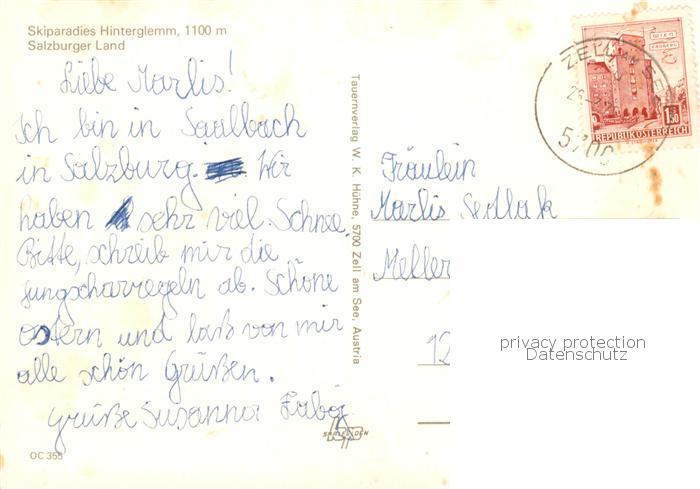 Skiparadies Hinterglemm, 1100 m
Salzburger Land
Liebe Marlis!
Ich bin in Saalbach
in Salzburg. Wir
haben sehr viel Schnee.
Bitte, schreib mir die
Jungscharregeln ab. Schöne
Ostern und laß von mir
alle schön Grüßen.
Grüße Susanna
OC 355
Tauernverlag W. K. Hühne, 5700 Zell am See, Austria
SAALFELDEN
ZELL AM SEE
5700
WIEN
ERDBERG
1.50
REPUBLIK ÖSTERREICH
Fräulein
Marlis Sedlak
Meller
12
privacy protection
Datenschutz